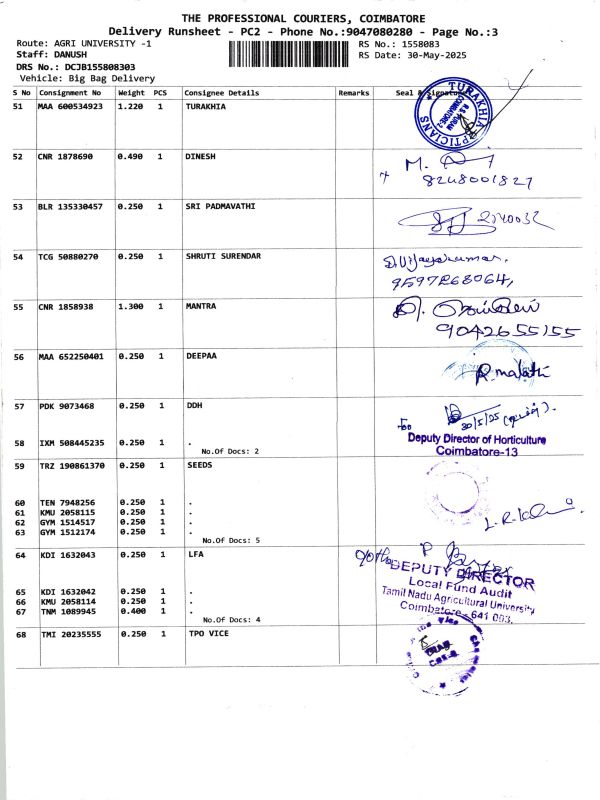 THE PROFESSIONAL COURIERS, COIMBATORE
Delivery Runsheet - PC2 - Phone No.:9047080280 - Page No.:3
Route: AGRI UNIVERSITY -1
Staff: DANUSH
DRS No.: DCJB155808303
Vehicle: Big Bag Delivery
RS No.: 1558083
RS Date: 30-May-2025
S No Consignment No Weight PCS Consignee Details Remarks Seal & Signature
51 MAA 600534923 1.220 1 TURAKHIA
TURAKHIA OPTICIANS
52 CNR 1878690 0.490 1 DINESH
8248001827
53 BLR 135330457 0.250 1 SRI PADMAVATHI
54 TCG 50880270 0.250 1 SHRUTI SURENDAR
D.Vijayakumar,
9597268064,
55 CNR 1858938 1.300 1 MANTRA
9042655155
56 MAA 652250401 0.250 1 DEEPAA
R.malathi
57 PDK 9073468 0.250 1 DDH
30/5/25
58 IXM 508445235 0.250 1 .
No.Of Docs: 2
Deputy Director of Horticulture
Coimbatore-13
59 TRZ 190861370 0.250 1 SEEDS
60 TEN 7948256 0.250 1 .
61 KMU 2058115 0.250 1 .
62 GYM 1514517 0.250 1 .
63 GYM 1512174 0.250 1 .
No.Of Docs: 5
64 KDI 1632043 0.250 1 LFA
DEPUTY DIRECTOR
Local Fund Audit
Tamil Nadu Agricultural University
Coimbatore - 641 003.
65 KDI 1632042 0.250 1 .
66 KMU 2058114 0.250 1 .
67 TNM 1089945 0.400 1 .
No.Of Docs: 4
68 TMI 20235555 0.250 1 TPO VICE